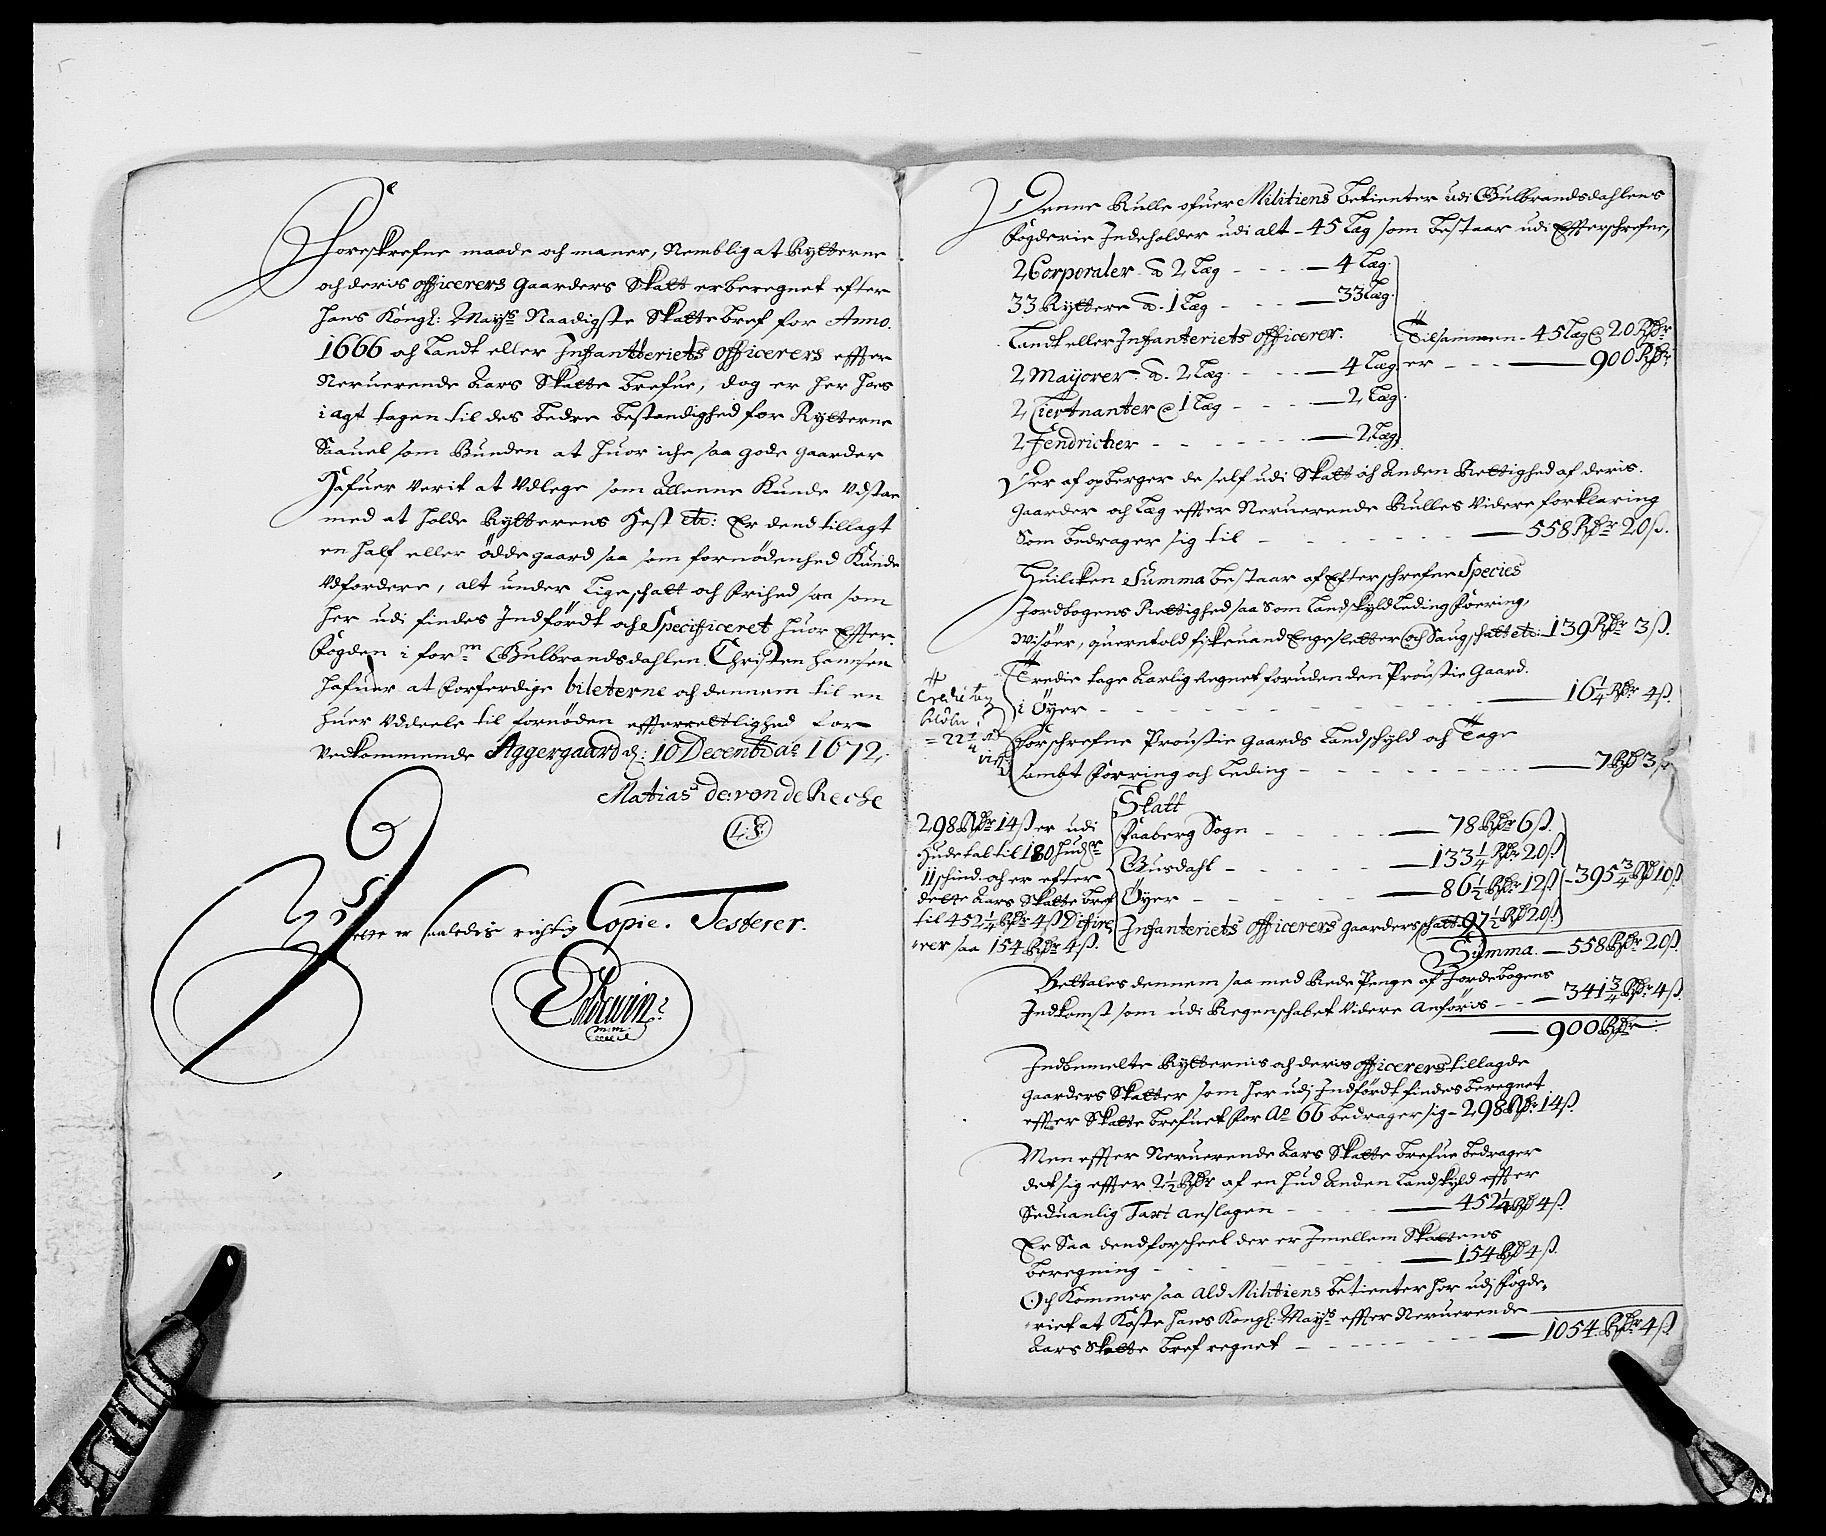 Foreskrefne maade och maner, Nemblig at Rytterne
och deris officerers gaarders Skatt er beregnet efter
Hans Kongl: Mayts Naadigste Skattebref for Anno.
1666 och Landt eller Infantteriets officerers effter
Neruerende Aars Skatte brefue, dog er her hos
i agt tagen til des bedre bestandighed for Rytterne
Saauel som Bunden at huor iche saa gode gaarder
Hafuer verit at Vdlege som allenne Kunde Vdstae
med at holde Rytterens Hest etc: Er dend tillagt
en half eller ödde gaard saa som fornödenhed Kunde
Vdfordere, alt under Lige schatt och Frihed saa som
her udi findes Indfördt och Specificeret huor Effter
Fogden i forn Gulbrandsdahlen Christen hansen
hafuer at forferdige bileterne och dennem til en
huer Vddeele til fornöden effterrettlighed for
Vedkommende Aggergaard d: 10 Decemb ao 1672,
Matias de: von de Recke
L:S:
Dette er saaledis richtig Copie. Testerer.
Denne Rulle ofuer Militiens betienter udi Gulbrandsdahlens
Fogderie Indeholder udi alt - 45 Læg som bestaar udi Effterschrefne,
2 Corporaler â 2 Læg - - - - 4 Læg.
33 Ryttere â. 1 Læg - - - 33 Læg.
Landt eller Infanteriets officerer.
Tilsammen - 45 læg @ 20 Rdr
2 Mayorer. â. 2 Læg. - - - 4 Læg
er - - - 900 Rdr
2 Liertnanter @ 1 Læg - - - 2 Læg.
2 Fendricher - - - - - 2 Læg
Der af opberger de self udi Skatt och Anden Rettighed af deris.
gaarder och Læg effter Neruerende Rulles Videre forklaring
Som bedrager sig til - - - 558 Rdr 20 ß.
Huilcken Summa bestaar af Efterschrefne Species
Jordbogens Rettighed saa Som Landskyld Leding Foering,
Wisöer, querntold fiskeuand Engesletter och Saugschatt etc: 139 Rdr 3 ß.
Tredie tage Aarlig Regnet foruden den Proustie Gaard.
i Öyer - - - - - 16 1/4 Rdr 4 ß.
Forschrefne Proustie gaards Landschyld och Tage
sambt Forring och Leding - - - - 7 Rd 3 ß
Tredie tag
= 22 1/4 Rd
298 Rdr 14 ß er udi
Hudetal til 180 hudr
11 schind. och er efter
dette Aars Skatte bref
til 452 1/4 Rdr 4 ß Difire,
rer saa 154 Rdr 4 ß.
Skatt
Faaberg Sogn - - - - 78 Rdr 6 ß.
Gusdahl - - - - 133 1/4 Rdr 20 ß
Öyer - - - - 86 1/2 Rdr 12 ß - 395 3/4 Rd 10 ß
Infanteriets officerers gaarders schatt 97 1/2 Rd 20 ß
Summa. - 558 Rdr 20 ß.
Bettales dennem saa med Rede Penge af Jordebogens
Indkomst som udi Regenschabet Videre Anföris - - 341 3/4 Rdr 4 ß.
900 Rdr
Indbemelte Rytternis och deris officerers tillagde
gaarders Skatter som her udj Indfördt findes beregnet
effter Skatte brefuet for Ao 66 bedrager sig - 298 Rdr: 14 ß.
Men effter Neruerende Aars Skatte brefue bedrager
det sig effter 2 1/2 Rdr af en hud Anden Landskyld effter
Seduanlig Taxt anslagen - - - 452 1/4 Rd 4 ß
Er Saa dend forscheel der er Imellem Skattens
beregning - - - - 154 Rd 4 ß.
Och Kommer saa Ald Militiens betienter her udj Fogde,
riet at Koste Hans Kongl: Mayts effter Neruerende
Aars Skatte bref regnet - - - - 1054 Rdr 4 ß